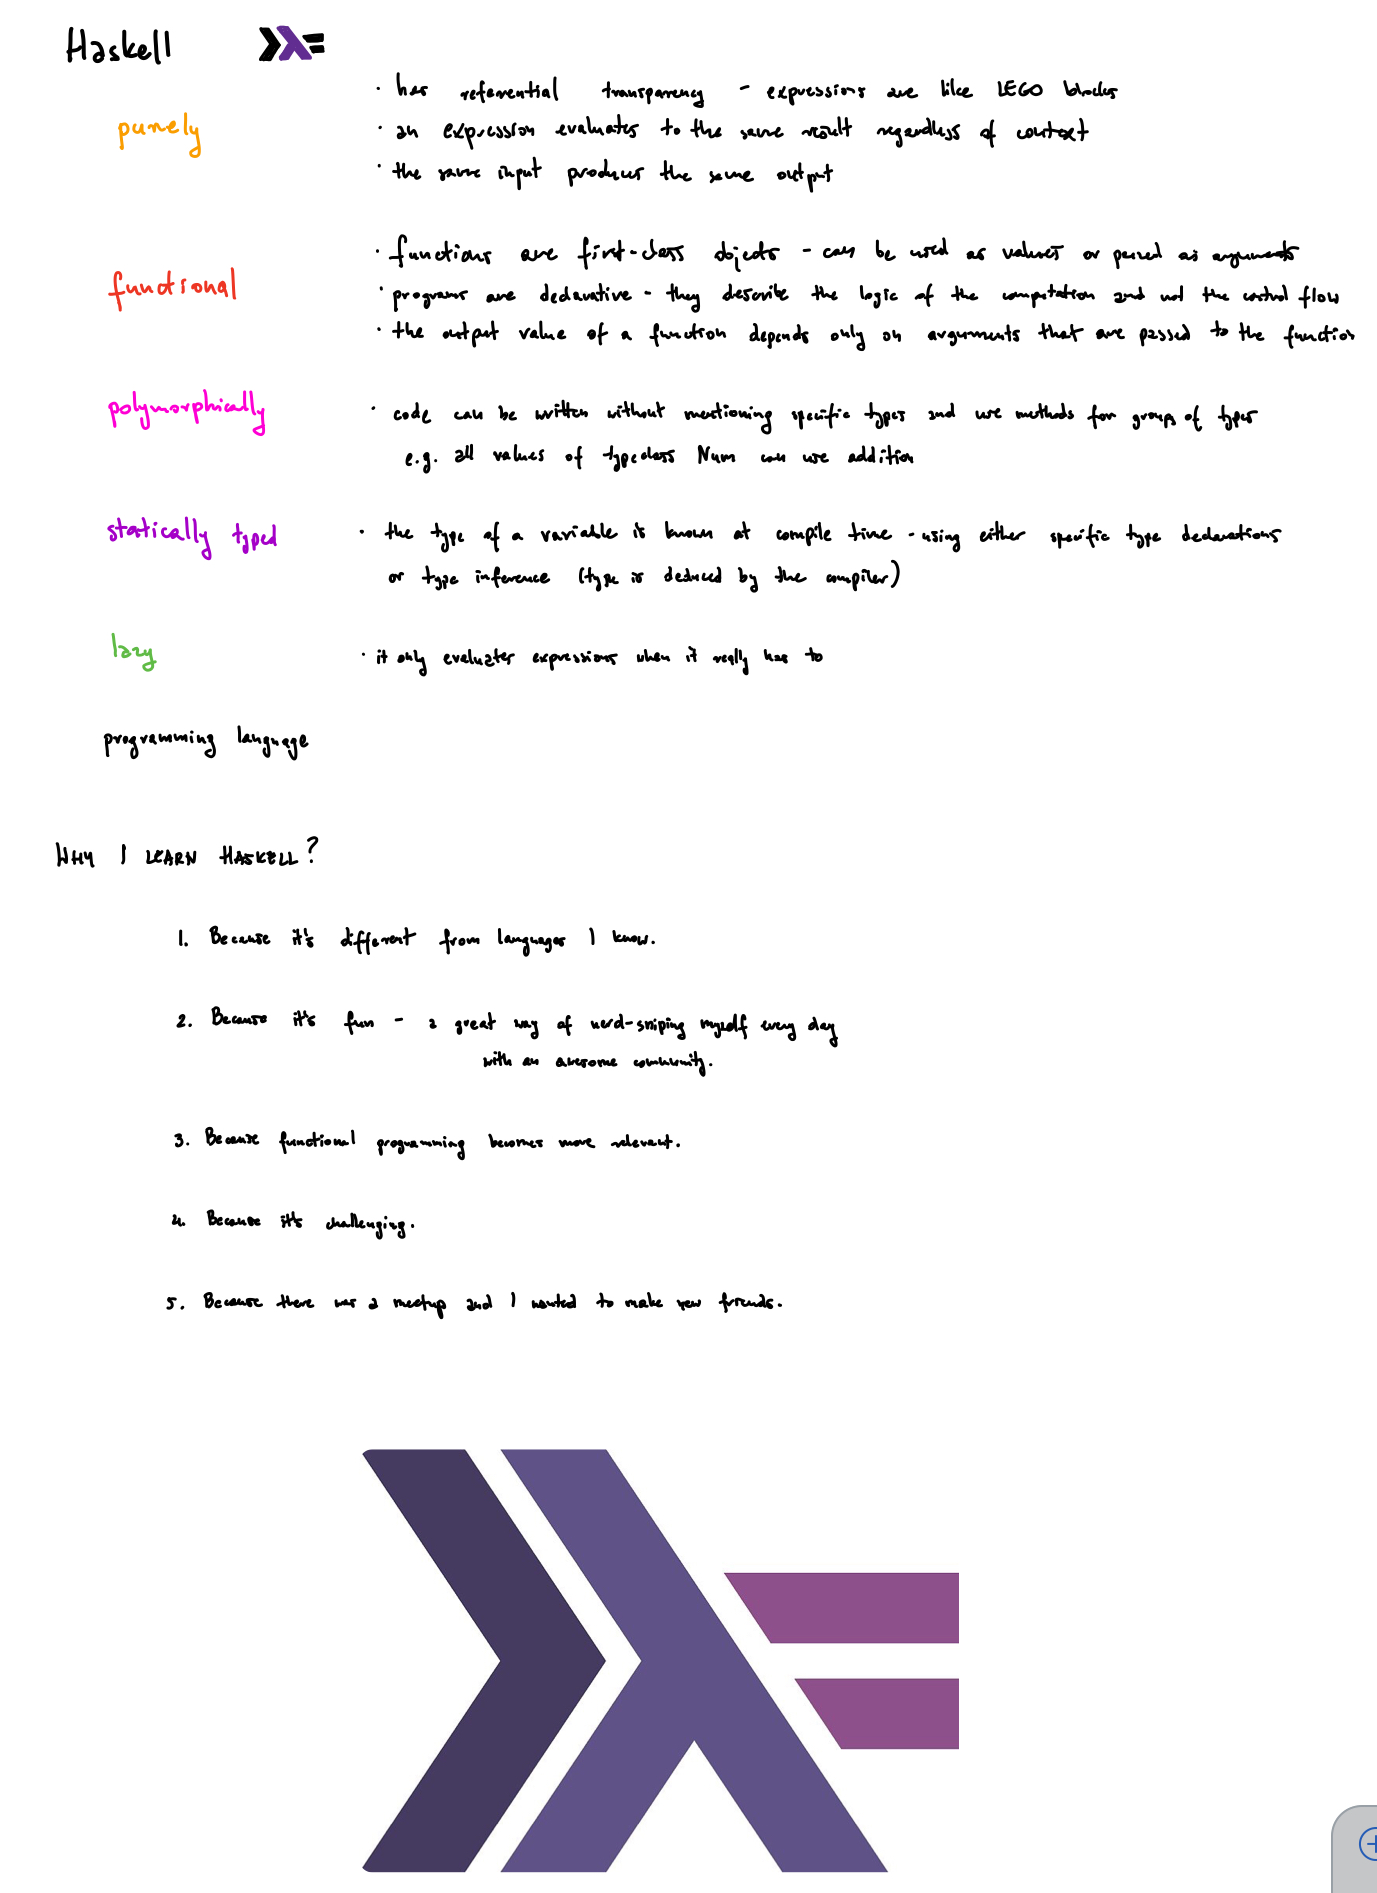 Haskell
purely
· has referential transparency - expressions are like LEGO blocks
· an expression evaluates to the same result regardless of context
· the same input produces the same output
functional
· functions are first-class objects - can be used as values or passed as arguments
· programs are declarative - they describe the logic of the computation and not the control flow
· the output value of a function depends only on arguments that are passed to the function
polymorphically
· code can be written without mentioning specific types and use methods for groups of types
e.g. all values of typeclass Num can use addition
statically typed
· the type of a variable is known at compile time - using either specific type declarations
or type inference (type is deduced by the compiler)
lazy
· it only evaluates expressions when it really has to
programming language
WHY I LEARN HASKELL?
1. Because it's different from languages I know.
2. Because it's fun - a great way of nerd-sniping myself every day
with an awesome community.
3. Because functional programming becomes more relevant.
4. Because it's challenging.
5. Because there was a meetup and I wanted to make new friends.